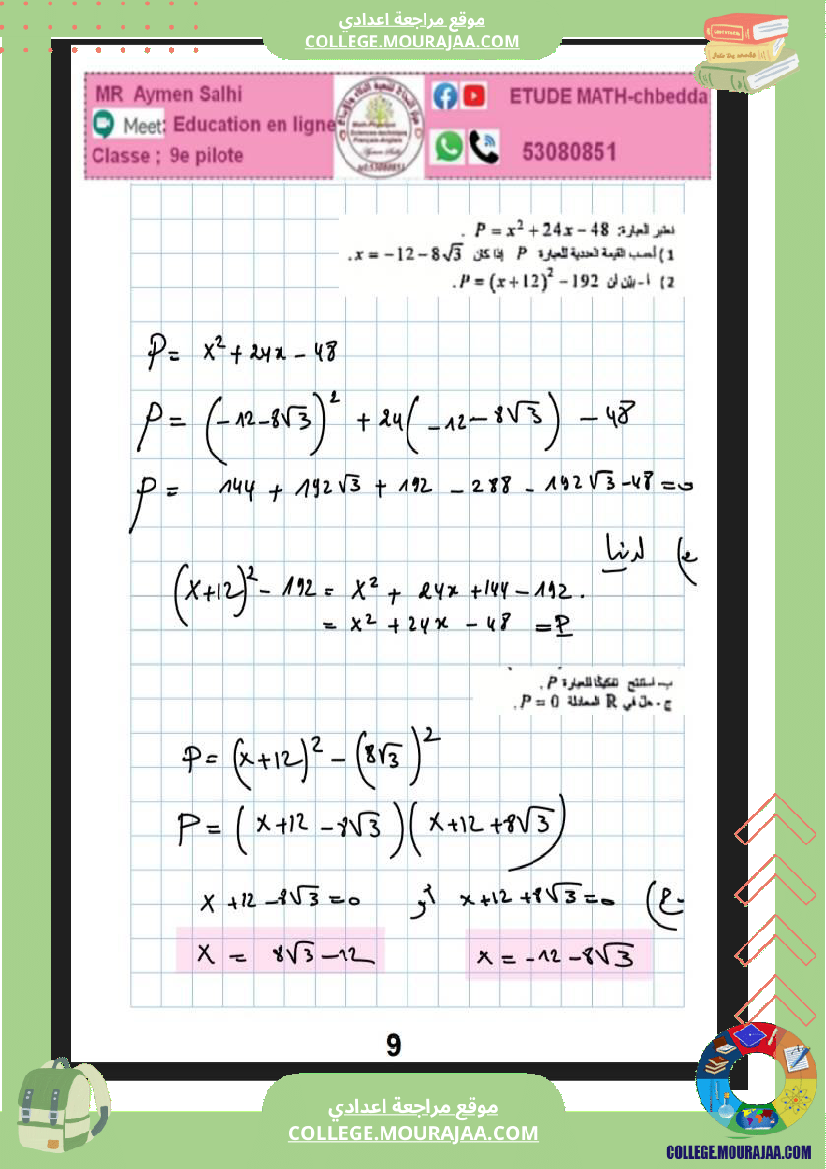 موقع مراجعة اعدادي
COLLEGE.MOURAJAA.COM
MR Aymen Salhi
Meet: Education en ligne
Classe ; 9e pilote
ETUDE MATH-chbedda
53080851
نعتبر العبارة: P = x² + 24x − 48 .
1) أحسب القيمة العددية للعبارة P إذا كان x = −12 − 8√3 .
2) أ- بيّن أن P = (x+12)² − 192 .
P = x² + 24x − 48
P = (−12−8√3)² + 24(−12−8√3) − 48
P = 144 + 192√3 + 192 − 288 − 192√3 − 48 = 0
لدينا
(x+12)² − 192 = x² + 24x + 144 − 192 .
= x² + 24x − 48 = P
ب- استنتج تفكيكا للعبارة P .
ج - حل في R المعادلة P = 0 .
P = (x+12)² − (8√3)²
P = (x+12−8√3)(x+12+8√3)
ج) x+12+8√3=0 أو x+12−8√3=0
x = 8√3−12
x = −12−8√3
9
موقع مراجعة اعدادي
COLLEGE.MOURAJAA.COM
COLLEGE.MOURAJAA.COM